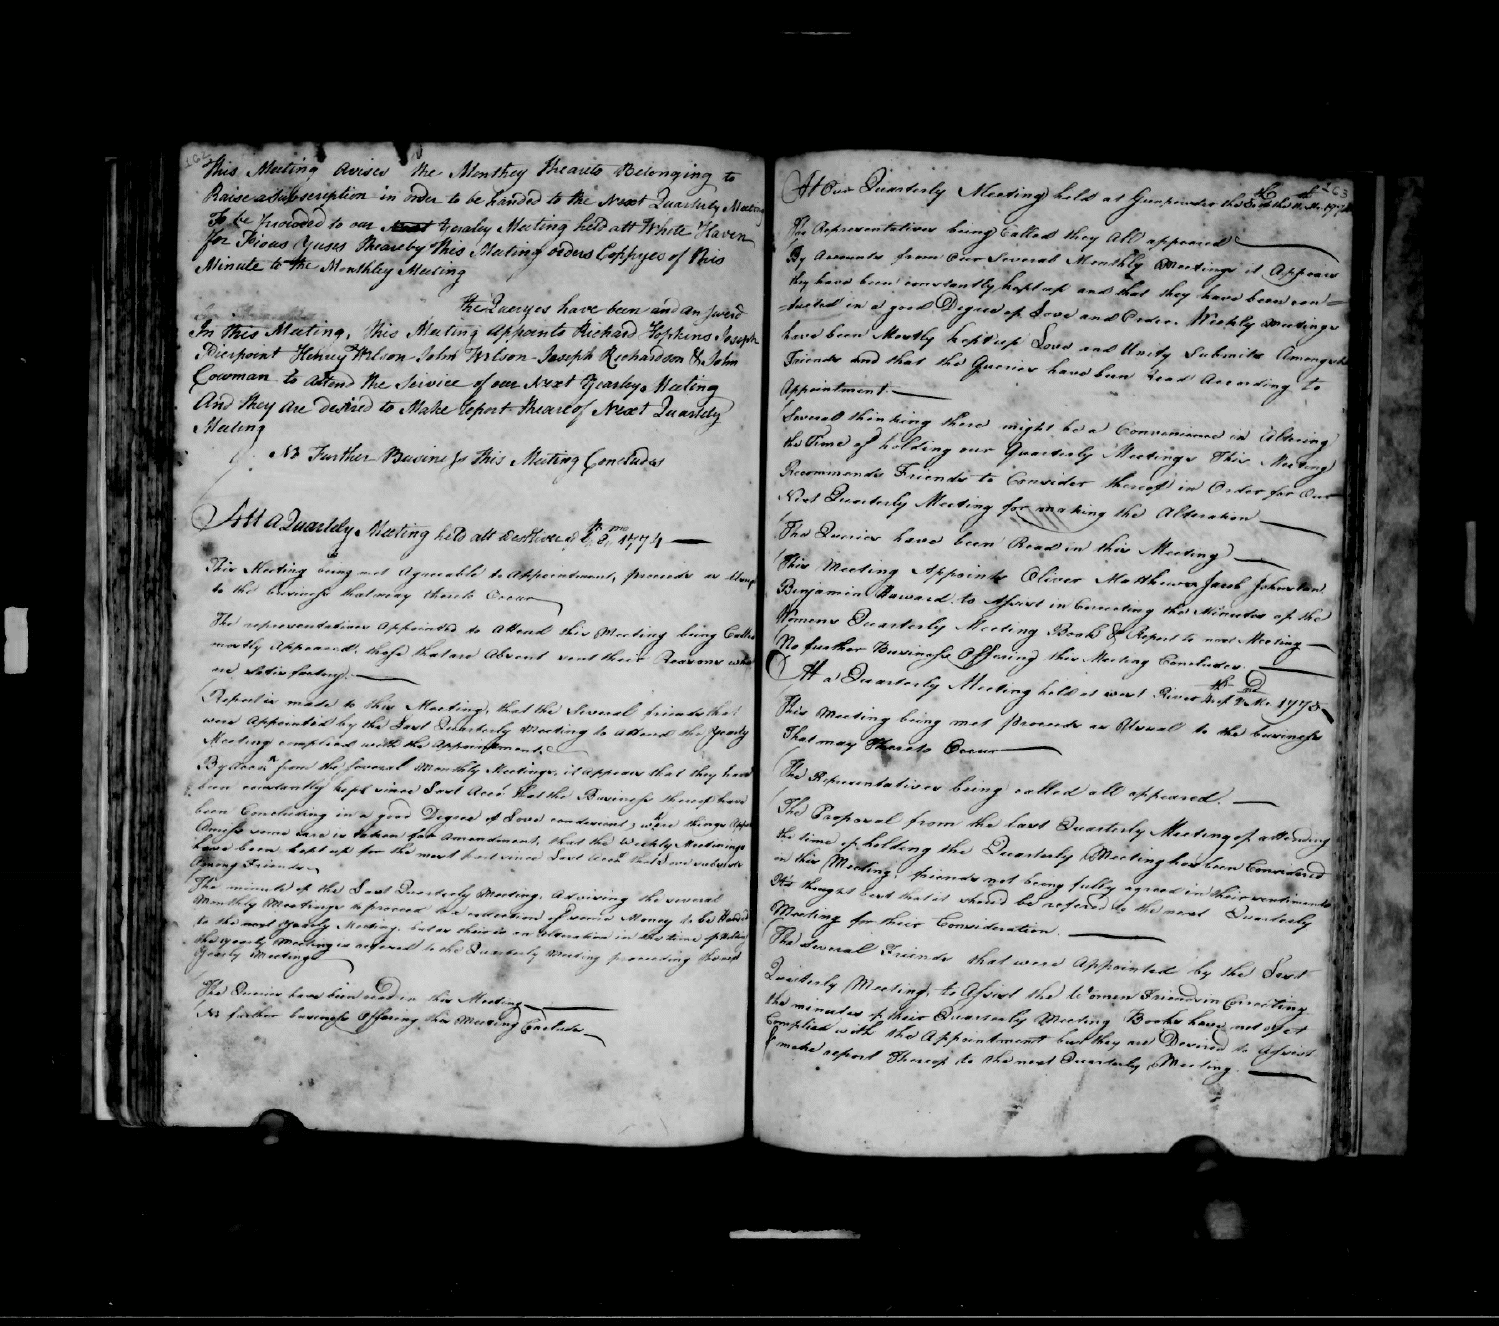 162
This Meeting Avises the Monthey Theareto Belonging to
Raise a Subscription in order to be handed to the Next Quarterly Meeting
To be forwoded to our Next Yeraley Meeting held att White Haven
for Frious Yuses Theareby This Meeting orders Coppyes of This
Minute to the Monthley Meeting
the Queryes have been and answerd
In this Meeting, This Meeting Appoints Richard Hopkins Joseph
Pierpoint Henery Wilson John Wilson Joseph Richardson & John
Cowman to attend the Service of our Next Yearley Meeting
And they are desired to Make Report Theareof Next Quarterly
Meeting
No Further Business this Meeting Concludes
Att a Quarterly Meeting held att 1774
This Meeting being met Agreeable to Appointment, proceeds as Usual
to the business that may thereto Occur
The representatives Appointed to Attend this Meeting being Called
mostly Appeared, those that are Absent sent their Reasons which
are Satisfactory
Report is made to this Meeting, that the Several friends that
were Appointed by the Last Quarterly Meeting to Attend the Yearly
Meeting complied with the Appointment
By Accots from the several Monthly Meetings, it appears that they have
been constantly kept since Last Acct that the Business thereof have
been Conducting in a good Degree of Love ; were things Appear
Amiss some care is taken for Amendment, that the Weekly Meetings
have been kept up for the most part since Last Acct that Love subsists
Among Friends
The minute of the Last Quarterly Meeting, Advising the several
Monthly Meetings to proceed to a collection of some Money to be Handed
to the next Yearly Meeting, but as their is an alteration in the time of holding
the Yearly Meeting is referred to the Quarterly Meeting preceeding the next
Yearly Meeting
The Queries have been read in this Meeting
No further business Offering this Meeting Concludes
163
At Our Quarterly Meeting held at Gunpowder the
The Representatives being Called they All appeared
By Accounts from Our Several Monthly Meetings it Appears
they have been constantly kept up and that they have been con=
=ducted in a good Degree of Love and Order. Weekly Meetings
have been Mostly kept up Love and Unity Subsists Amongst
Friends and that the Queries have been read According to
Appointment.
Several thinking there might be a Convenience in Altering
the Time of holding our Quarterly Meetings This Meeting
Recommends Friends to Consider thereof in Order for Our
Next Quarterly Meeting for making the Alteration
The Queries have been Read in this Meeting
This Meeting Appoints Oliver Matthews Jacob Johnston
Benjamin Haward to Assist in Correcting the Minutes of the
Womens Quarterly Meeting Book & Report to next Meeting
No further Business Offering this Meeting Concludes.
At a Quarterly Meeting held at West River 1775
This Meeting being met proceeds as Usual to the business
That may Thereto Occur
The Representatives being called all appeared.
The Proposal from the last Quarterly Meeting of attending
the time of holding the Quarterly Meeting has been Considered
in this Meeting, friends not being fully agreed in their sentiments
Its thought best that it should be referred to the next Quarterly
Meeting for their Consideration.
The several Friends that were Appointed by the Last
Quarterly Meeting, to Assist the Women Friends in Correcting
the minutes of their Quarterly Meeting Books have not yet
Complied with the Appointment but they are Desired to Assist
& make report Thereof to the next Quarterly Meeting.